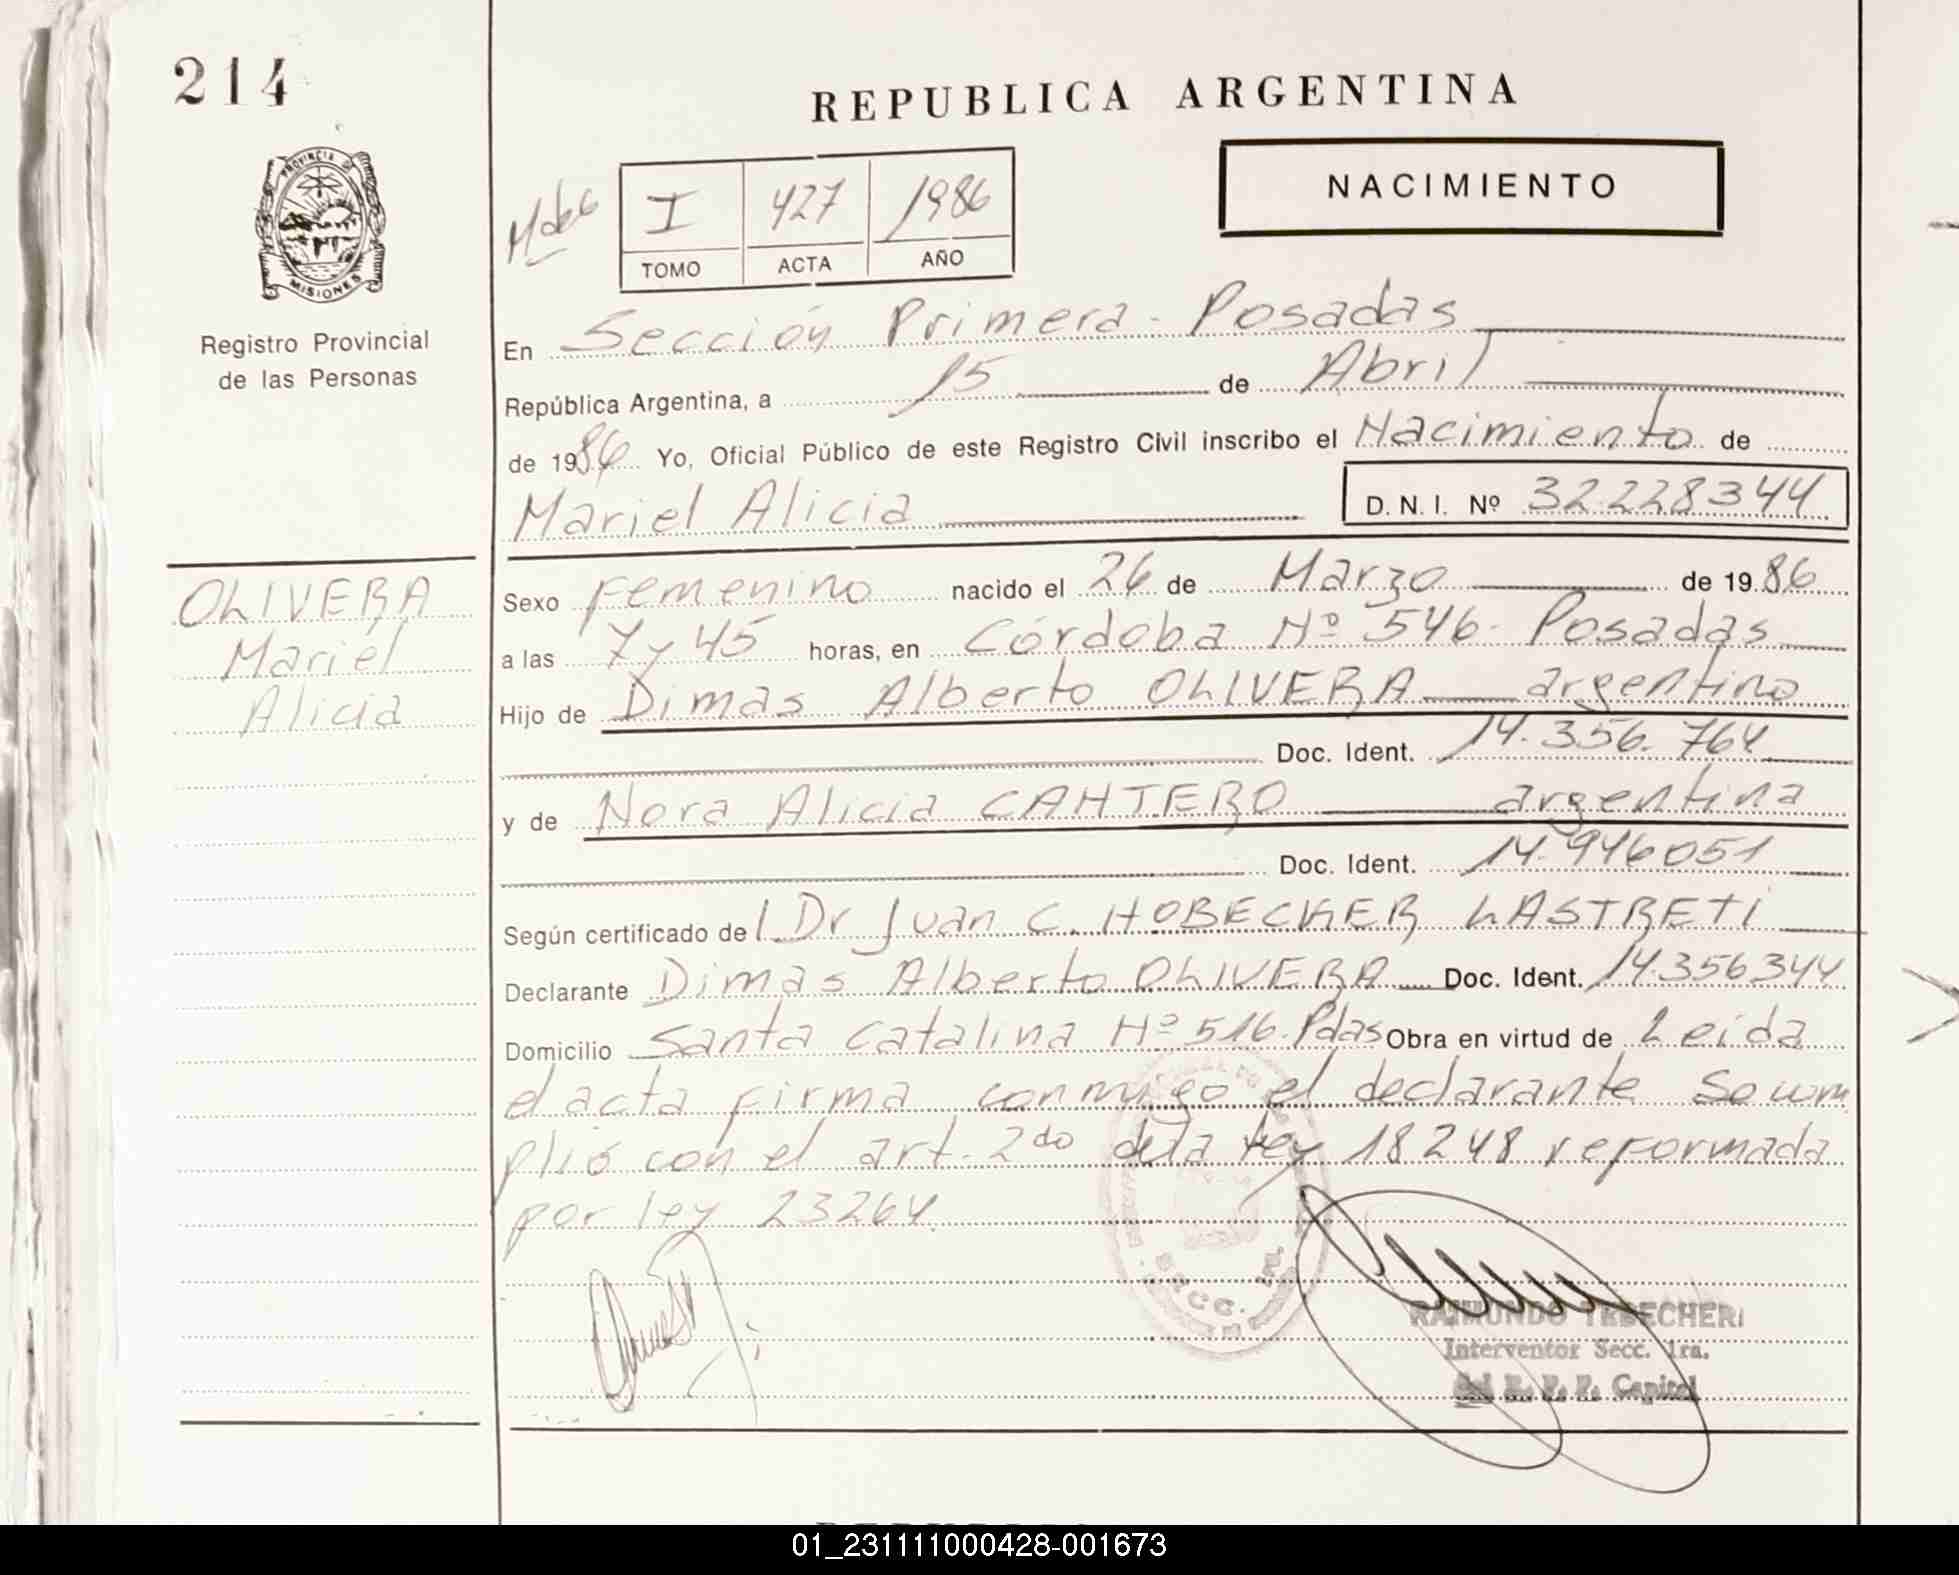 214
REPUBLICA ARGENTINA
NACIMIENTO
I 427 1986
TOMO ACTA AÑO
PROVINCIA DE
MISIONES
Registro Provincial
de las Personas
En Sección Primera - Posadas
República Argentina, a 15 de Abril
de 1986 Yo, Oficial Público de este Registro Civil inscribo el Nacimiento de
Mariel Alicia D. N. I. Nº 32.228344
OLIVERA
Mariel
Alicia
Sexo Femenino nacido el 26 de Marzo de 1986
a las 7 y 45 horas, en Córdoba Nº 546- Posadas
Hijo de Dimas Alberto OLIVERA argentino
Doc. Ident. 14.356.764
y de Nora Alicia CANTERO argentina
Doc. Ident. 14.946051
Según certificado del Dr Juan C. HOBECKER LASTRETI
Declarante Dimas Alberto OLIVERA Doc. Ident. 14.356344
Domicilio Santa Catalina Nº 516. Pdas Obra en virtud de Leida
el acta firma conmigo el declarante Se cum
plió con el art. 2do de la Ley 18248 reformada
por ley 23264
SECC.
RAIMUNDO TEBECHERI
Interventor Secc. 1ra.
del R. P. P. Capital
01_231111000428-001673